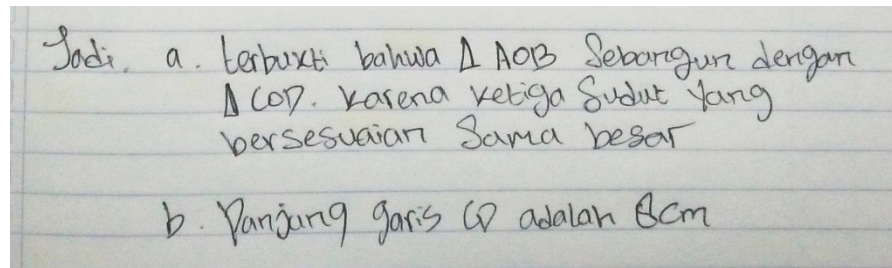 Jadi, a. terbukti bahwa Δ AOB Sebangun dengan
Δ COD. Karena ketiga Sudut Yang
bersesuaian Sama besar
b. Panjang garis CD adalah 8cm